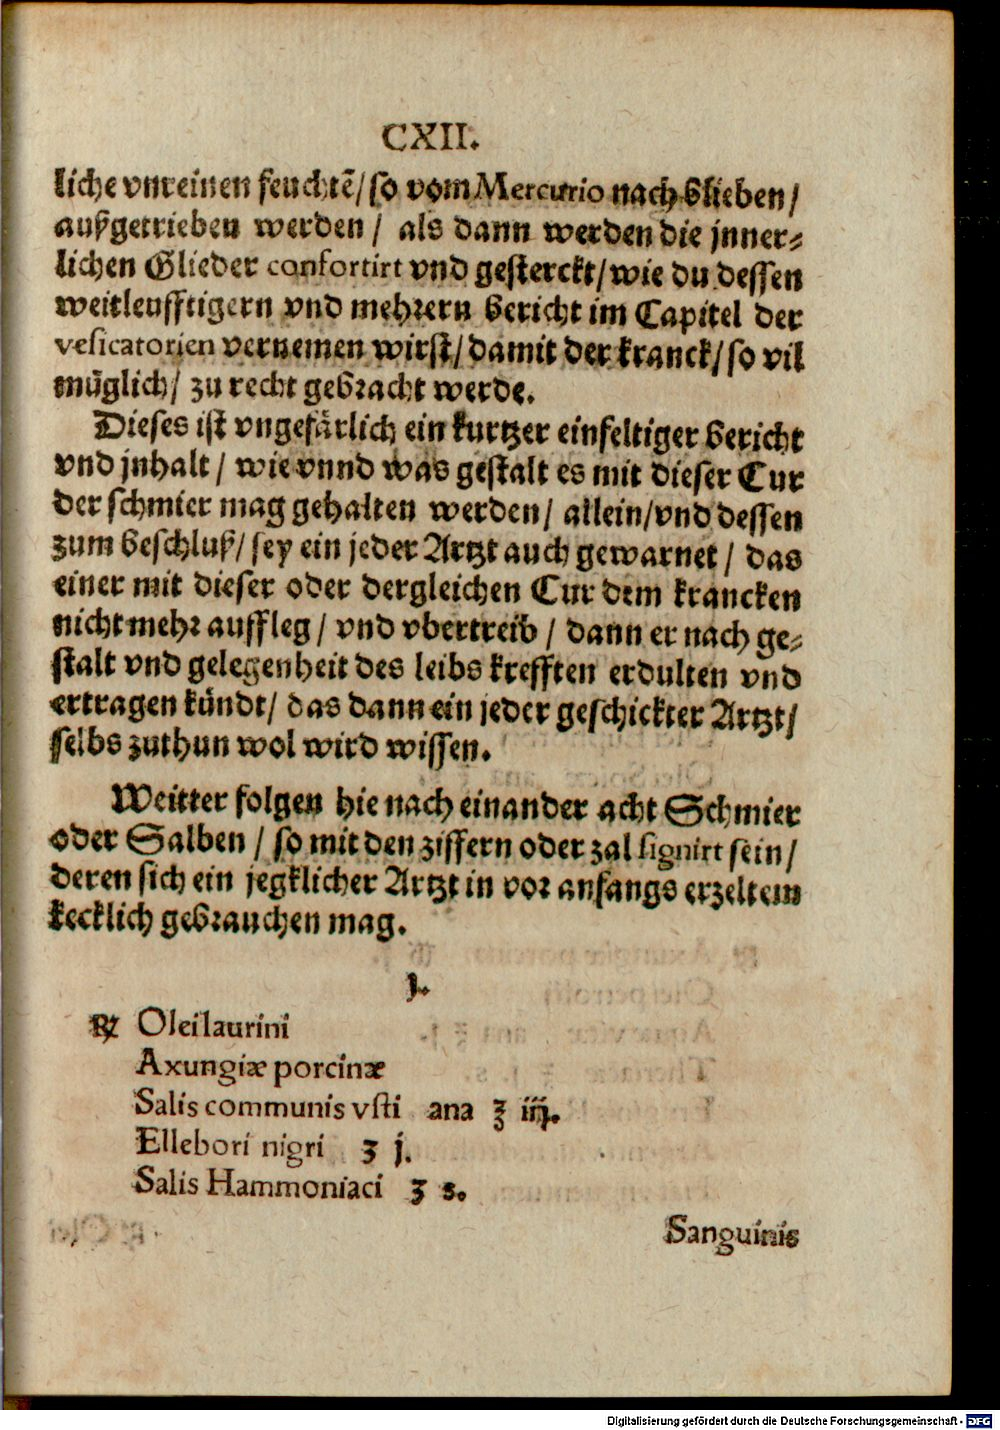 CXII.
liche vnreinen feuchtē/ so vom Mercurio nach blieben/
außgetrieben werden/ als dann werden die jnner⸗
lichen Glieder confortirt vnd gesterckt/ wie du dessen
weitleufftigern vnd mehrern bericht im Capitel der
vesicatorien vernemen wirst/ damit der kranck/ so vil
müglich/ zu recht gebracht werde.
Dieses ist vngefärlich ein kurtzer einfeltiger bericht
vnd jnhalt/ wie vnnd was gestalt es mit dieser Cur
der schmier mag gehalten werden/ allein/ vnd dessen
zum beschluß/ sey ein jeder Artzt auch gewarnet/ das
einer mit dieser oder dergleichen Cur dem krancken
nicht mehr auffleg/ vnd vbertreib/ dann er nach ge⸗
stalt vnd gelegenheit des leibs krefften erdulten vnd
ertragen kündt/ das dann ein jeder geschickter Artzt/
selbs zuthun wol wird wissen.
Weitter folgen hie nach einander acht Schmier
oder Salben/ so mit den ziffern oder zal signirt sein/
deren sich ein jegklicher Artzt in vor anfangs erzeltem
kecklich gebrauchen mag.
j.
℞ Olei laurini
Axungiæ porcinæ
Salis communis vsti ana ℥ iij.
Ellebori nigri ʒ j.
Salis Hammoniaci ʒ s.
Sanguinis
Digitalisierung gefördert durch die Deutsche Forschungsgemeinschaft - DFG